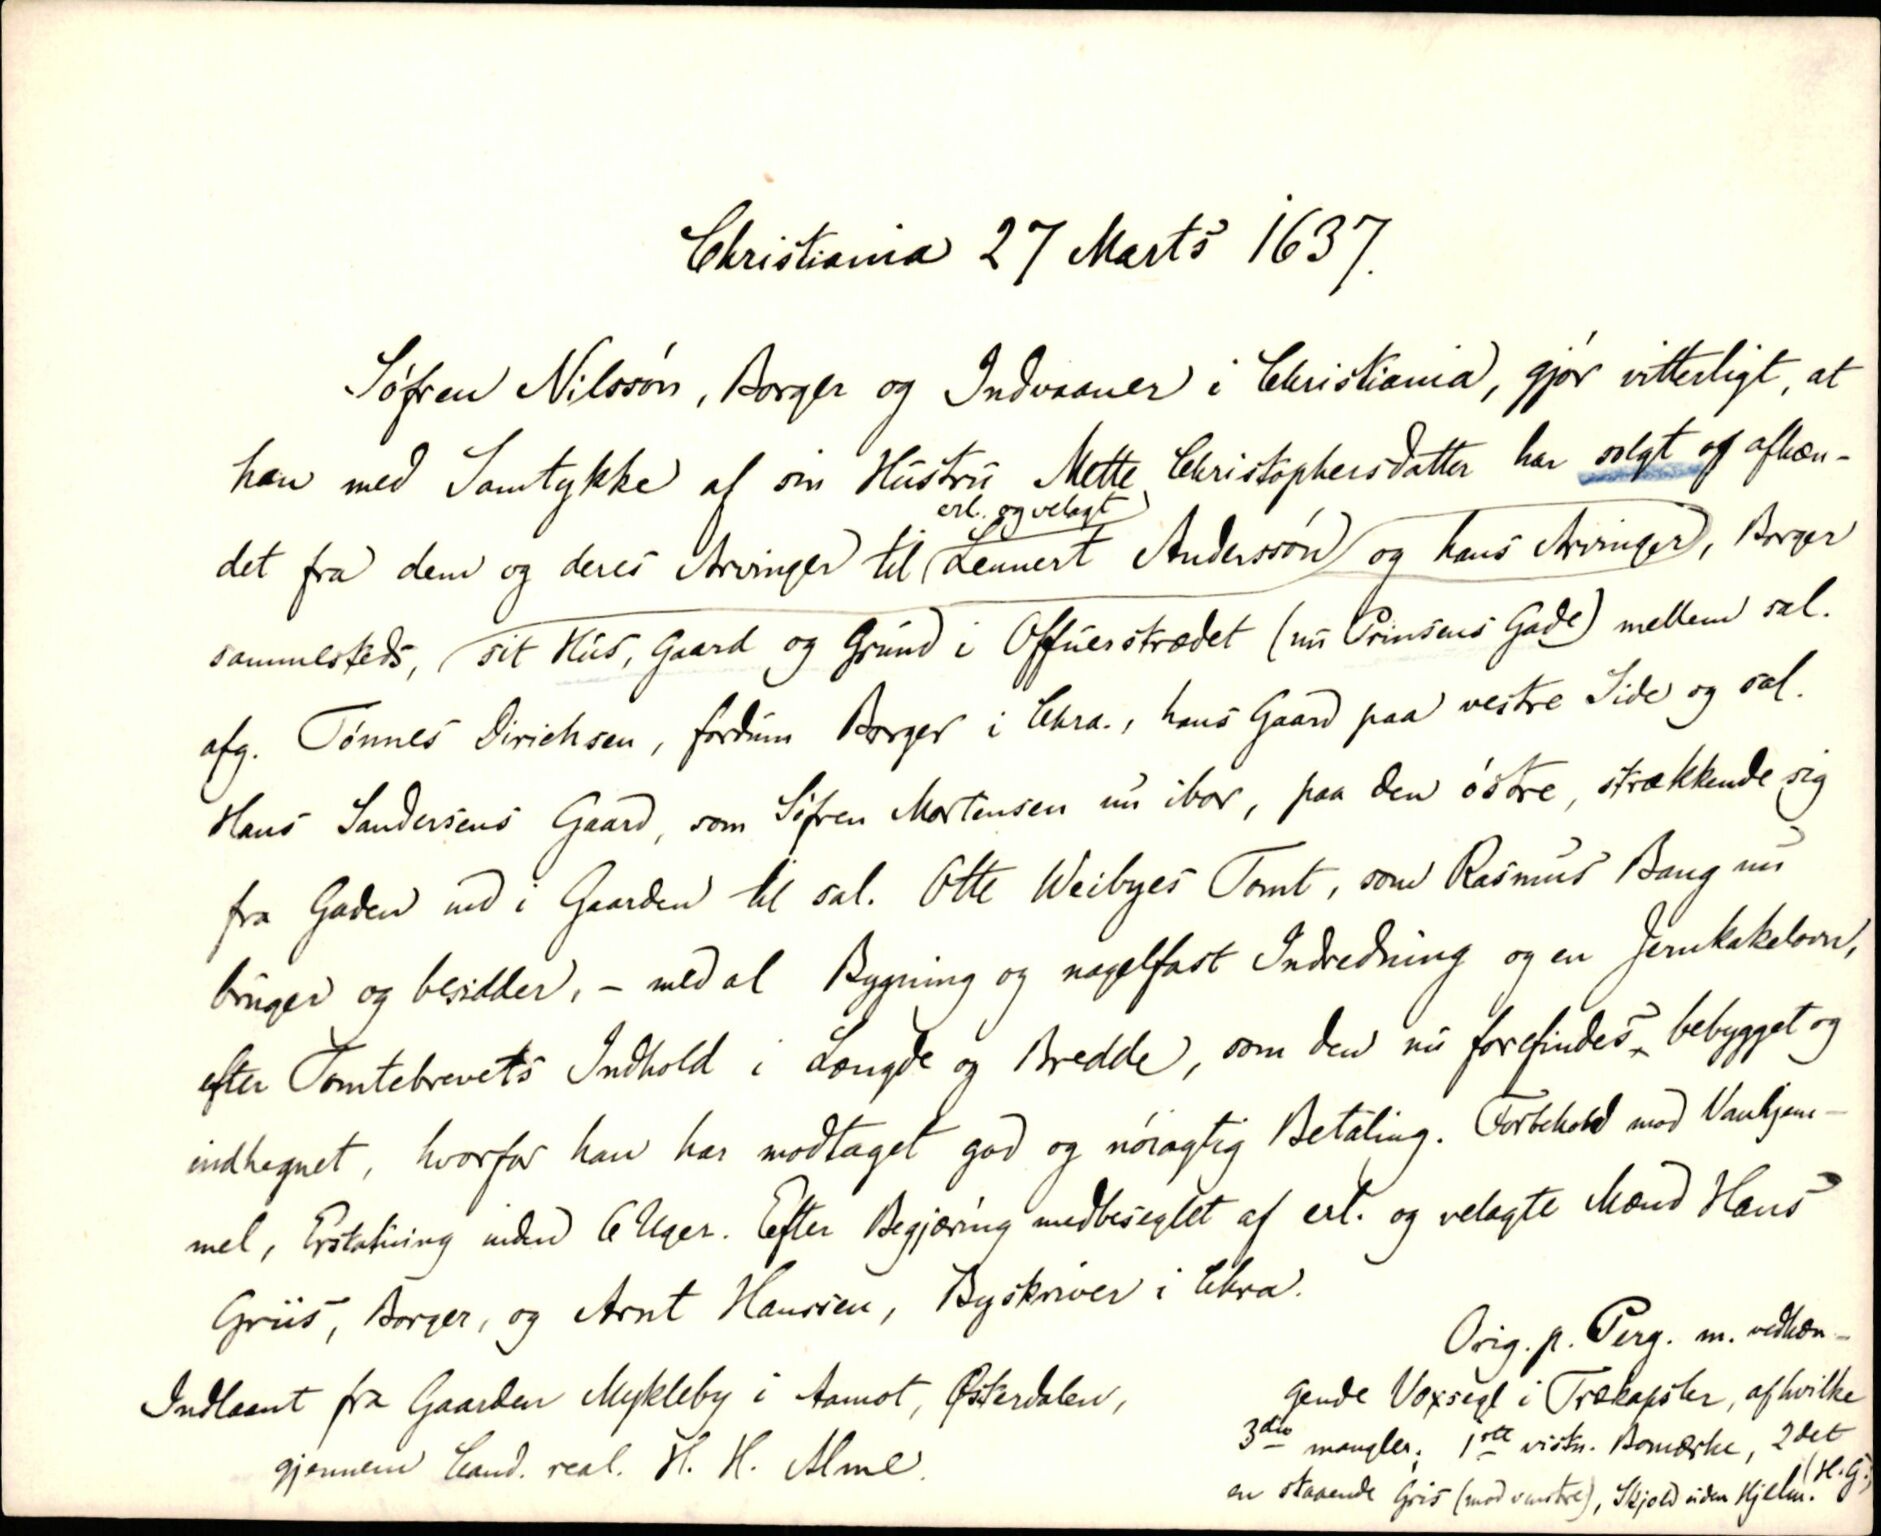 Christiania 27 Marts 1637.
Söfren Nilssön, Borger og Indvaaner i Christiania, gjör vitterligt, at
han med Samtykke af sin Hustru Mette Christophersdatter har solgt og afhæn-
erl. og velagt
det fra dem og deres Arvinger til Lennert Anderssön og hans Arvinger, Borger
sammesteds, sit Hus, Gaard og Grund i Offuerstrædet (nu Prinsens Gade) mellem sal.
afg. Tönnes Dirichsen, fordum Borger i Chra., hans Gaard paa vestre Side og sal.
Hans Sandersens Gaard, som Söfren Mortensen nu ibor, paa den östre, strækkende sig
fra Gaden ind i Gaarden til sal. Otte Weibyes Tomt, som Rasmus Bang nu
bruger og besidder, - med al Bygning og nagelfast Indredning og en Jernkakelovn,
efter Tomtebrevets Indhold i Længde og Bredde, som den nu forefindes bebygget og
indhegnet, hvorfor han har modtaget god og nöiagtig Betaling. Forbehold mod Vanhjem-
mel, Erstatning inden 6 Uger. Efter Begjæring medbeseglet af erl. og velagte Mænd Hans
Griis, Borger, og Arnt Hanssen, Byskriver i Chra.
Orig. p. Perg. m. vedhæn-
gende Voxsegl i Trækapsler, af hvilke
3die mangler; 1ste vistn. Bomærke, 2det
en staaende Gris (mod venstre), Skjold uden Hjelm. (H. G.)
Indlaant fra Gaarden Mykleby i Aamot, Østerdalen,
gjennem Cand. real. H. H. Alme.